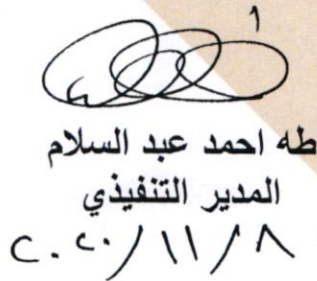 طه احمد عبد السلام
المدير التنفيذي
٢٠٢٠/١١/٨